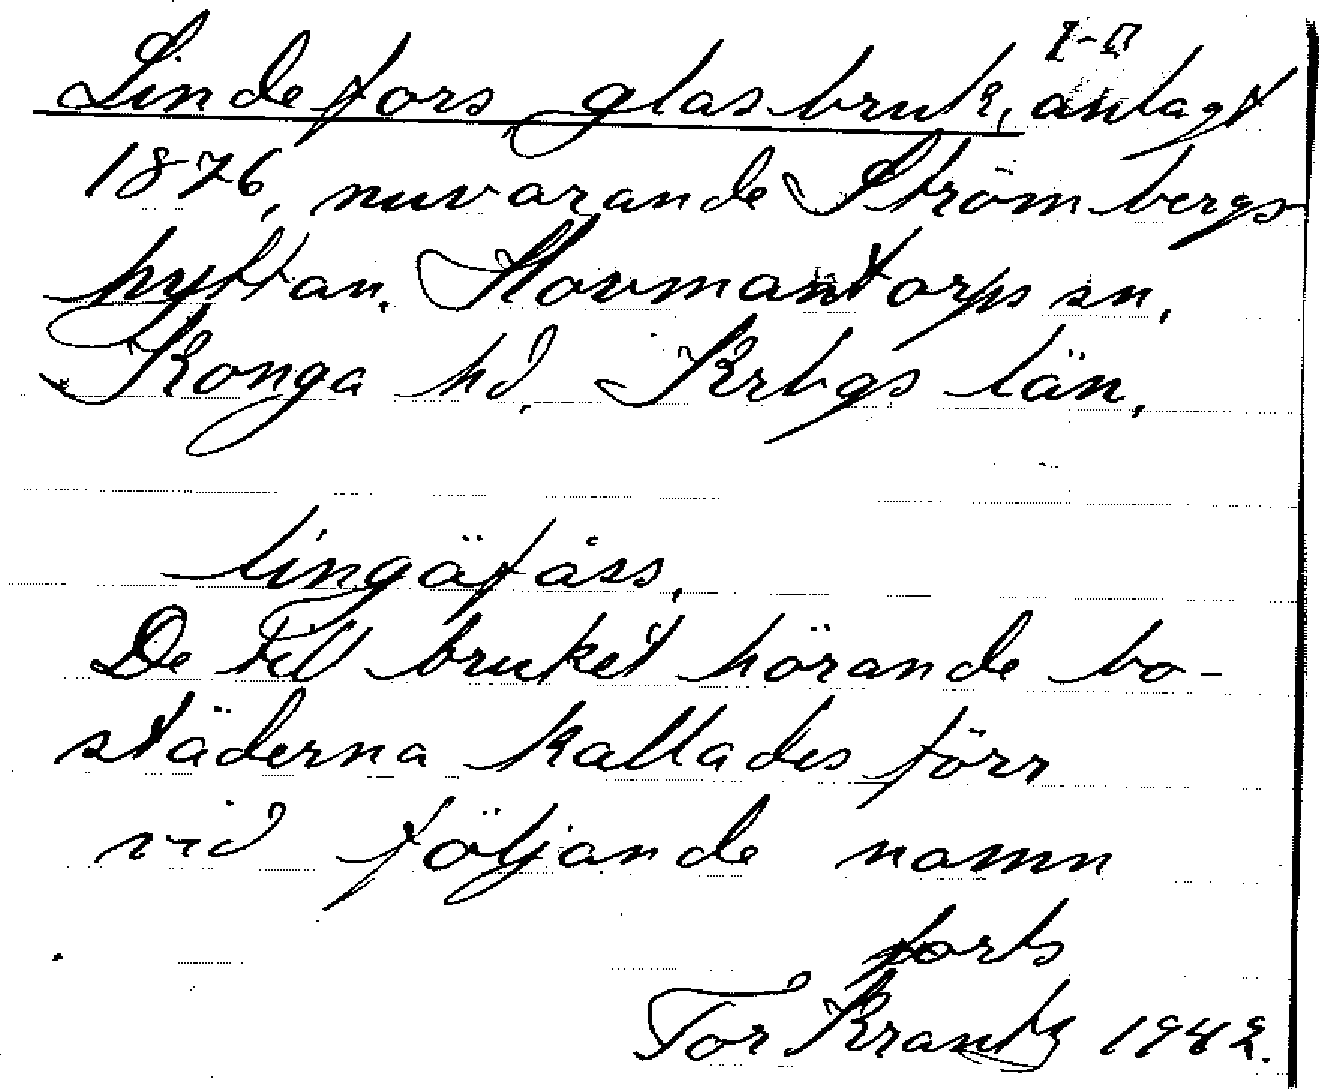 I-II
Lindefors glasbruk, anlagt
1876, nuvarande Strömbergs
hyttan. Hovmantorps sn,
Konga hd. Krbgs län,
lingäfåss,
De till bruket hörande bo-
städerna kallades förr
vid följande namn
forts
Tor Krantz 1942.